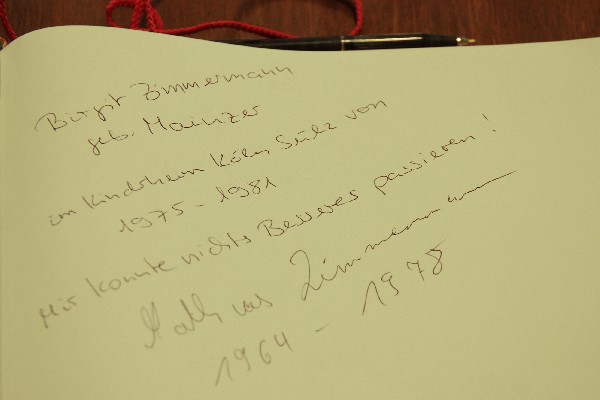 Birgit Zimmermann
geb. Mainzer
im Kinderheim Köln Sülz von
1975 - 1981
Mir konnte nichts Besseres passieren!
Zimmermann
1964 - 1978